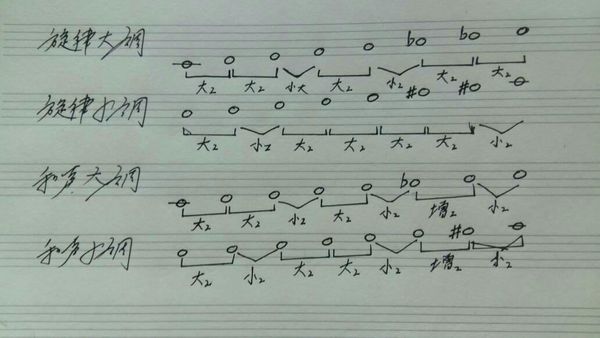 旋律大调 b b
大2 大2 小大 大2 小2 大2 大2
旋律小调 # #
大2 小2 大2 大2 大2 大2 小2
和声大调 b
大2 大2 小2 大2 小2 增2 小2
和声小调 #
大2 小2 大2 大2 小2 增2 小2